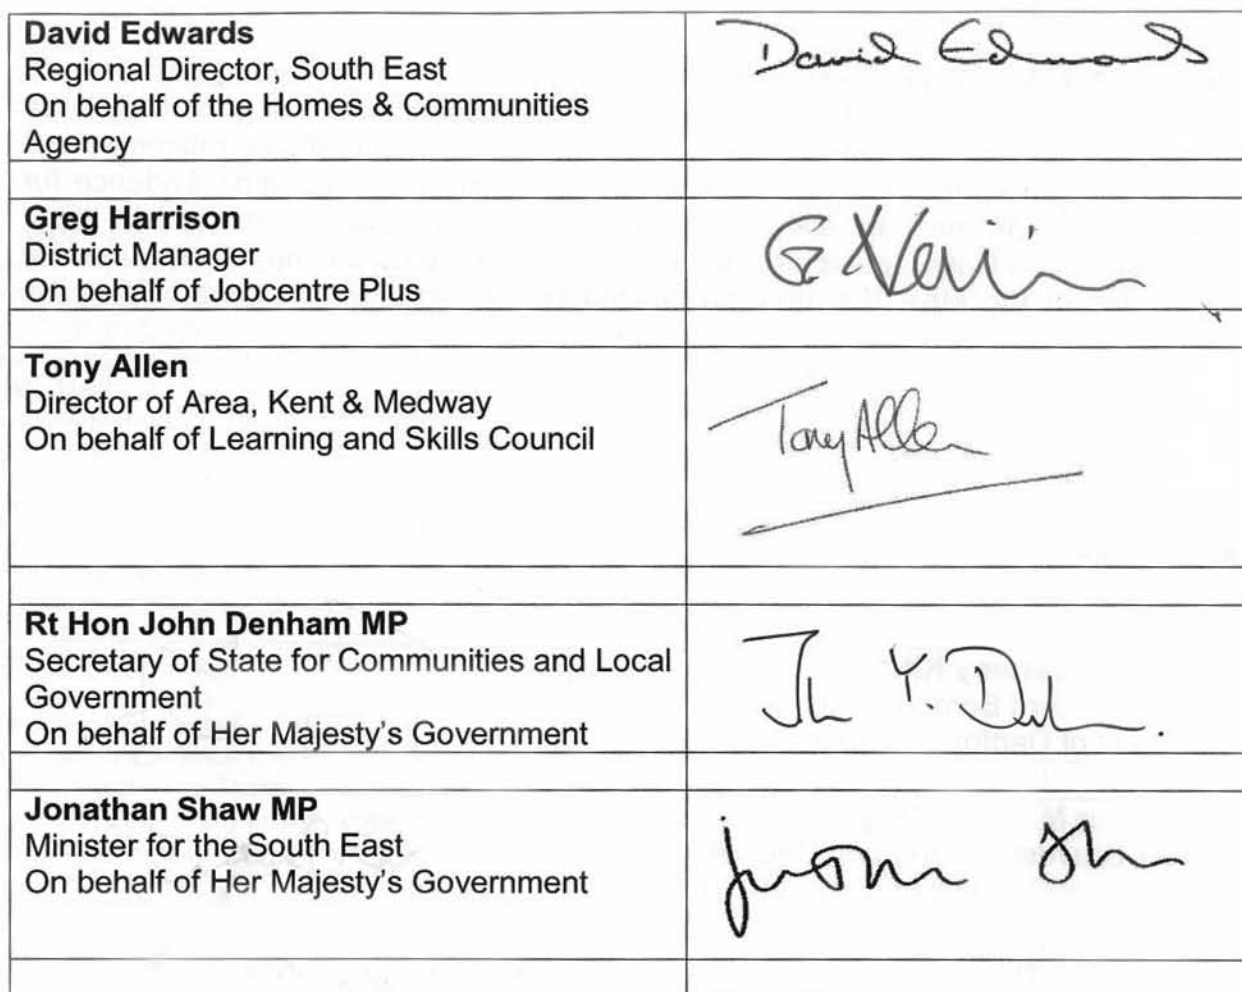 David Edwards
Regional Director, South East
On behalf of the Homes & Communities
Agency
David Edwards
Greg Harrison
District Manager
On behalf of Jobcentre Plus
Tony Allen
Director of Area, Kent & Medway
On behalf of Learning and Skills Council
Tony Allen
Rt Hon John Denham MP
Secretary of State for Communities and Local
Government
On behalf of Her Majesty's Government
Jonathan Shaw MP
Minister for the South East
On behalf of Her Majesty's Government